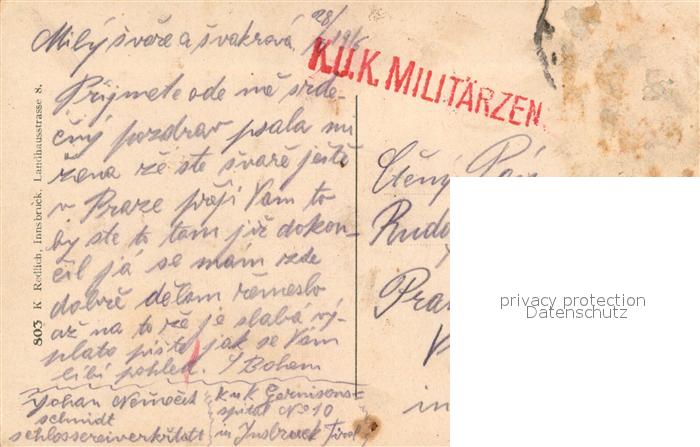 28/
19/6
Milý švaře a švakrová
K.u.K. MILITÄRZEN
Přijmete ode mě srde-
čný pozdrav psala mi
žena že ste švaře ještě
v Praze přeji Vam to
by ste to tam již dokon-
čil já se mám zde
dobře dělam řemeslo
až na to že je slabá vý-
plata pište jak se Vám
libí pohled. S Bohem
Johan Němeček
schmidt
schlossereiwerkstatt
K.u.K Garnisons-
spital No 10
in Insbruck Tirol
803 K Redlich, Innsbruck, Landhausstrasse 8.
Ctěný Pan
Rudo
Pra
in
privacy protection
Datenschutz